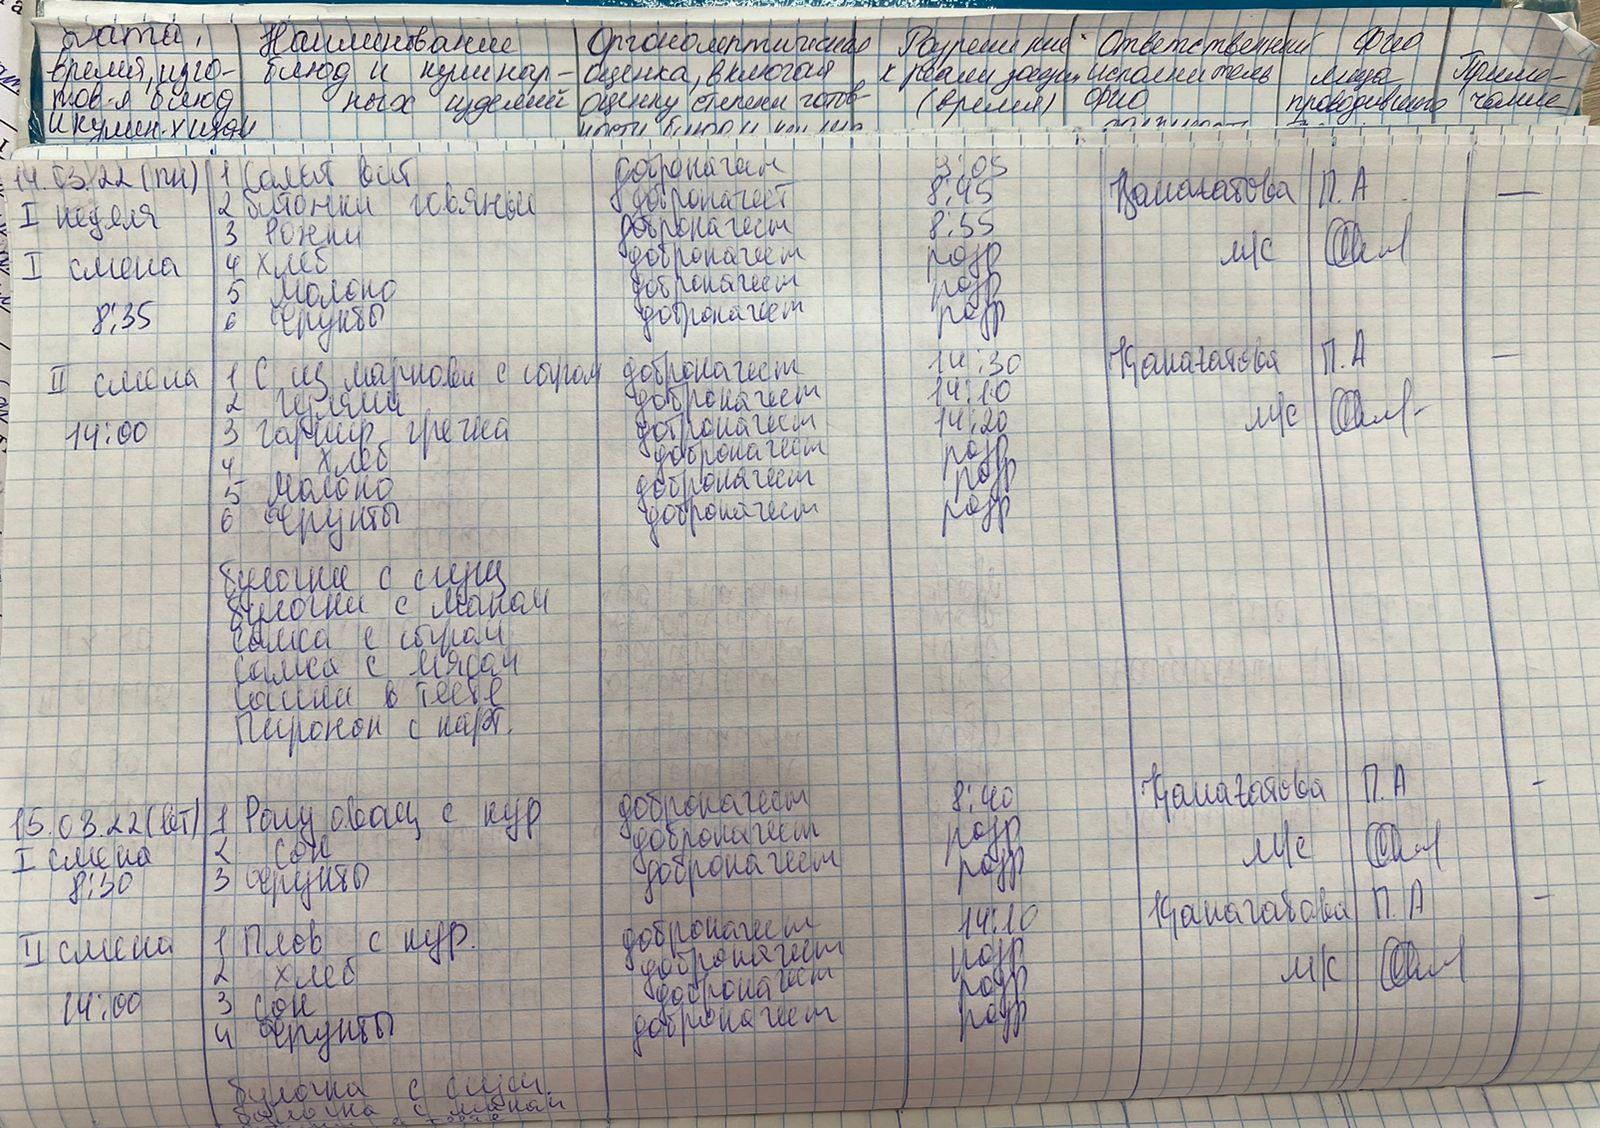 Дата, Наименование Органолептическая Разрешение Ответственный ФИО
время, изго- блюд и кулинар- оценка, включая к реализации исполнитель лица Приме-
тов-я блюд ных изделий оценку степени готов- (время) ФИО проводившего чание
и кулин-х издел ности блюд и
14.03.22 (пн) 1 Салат вит доброкачест 9:05
I неделя 2 биточки говяжьи доброкачест 8:45 Канагатова П.А —
3 Рожки доброкачест 8:55
I смена 4 хлеб доброкачест разр м/с
5 Молоко доброкачест разр
8:35 6 Фрукты доброкачест разр
II смена 1 С из моркови с сыром доброкачест 14:30 Канагатова П.А —
2 Гуляш доброкачест 14:10
14:00 3 гарнир гречка доброкачест 14:20 м/с
4 хлеб доброкачест разр
5 Молоко доброкачест разр
6 Фрукты доброкачест разр
булочки с сгущ
булочки с маком
Самса с сыром
Самса с мясом
Сосиски в тесте
Пирожок с карт.
15.03.22 (вт) 1 Рагу овощ с кур доброкачест 8:40 Канагатова П.А -
I смена 2 сок доброкачест разр м/с
8:30 3 Фрукты доброкачест разр
II смена 1 Плов с кур. доброкачест 14:10 Канагатова П.А -
2 хлеб доброкачест разр м/с
14:00 3 Сок доброкачест разр
4 Фрукты доброкачест разр
булочка с сгущ.
булочка с маком